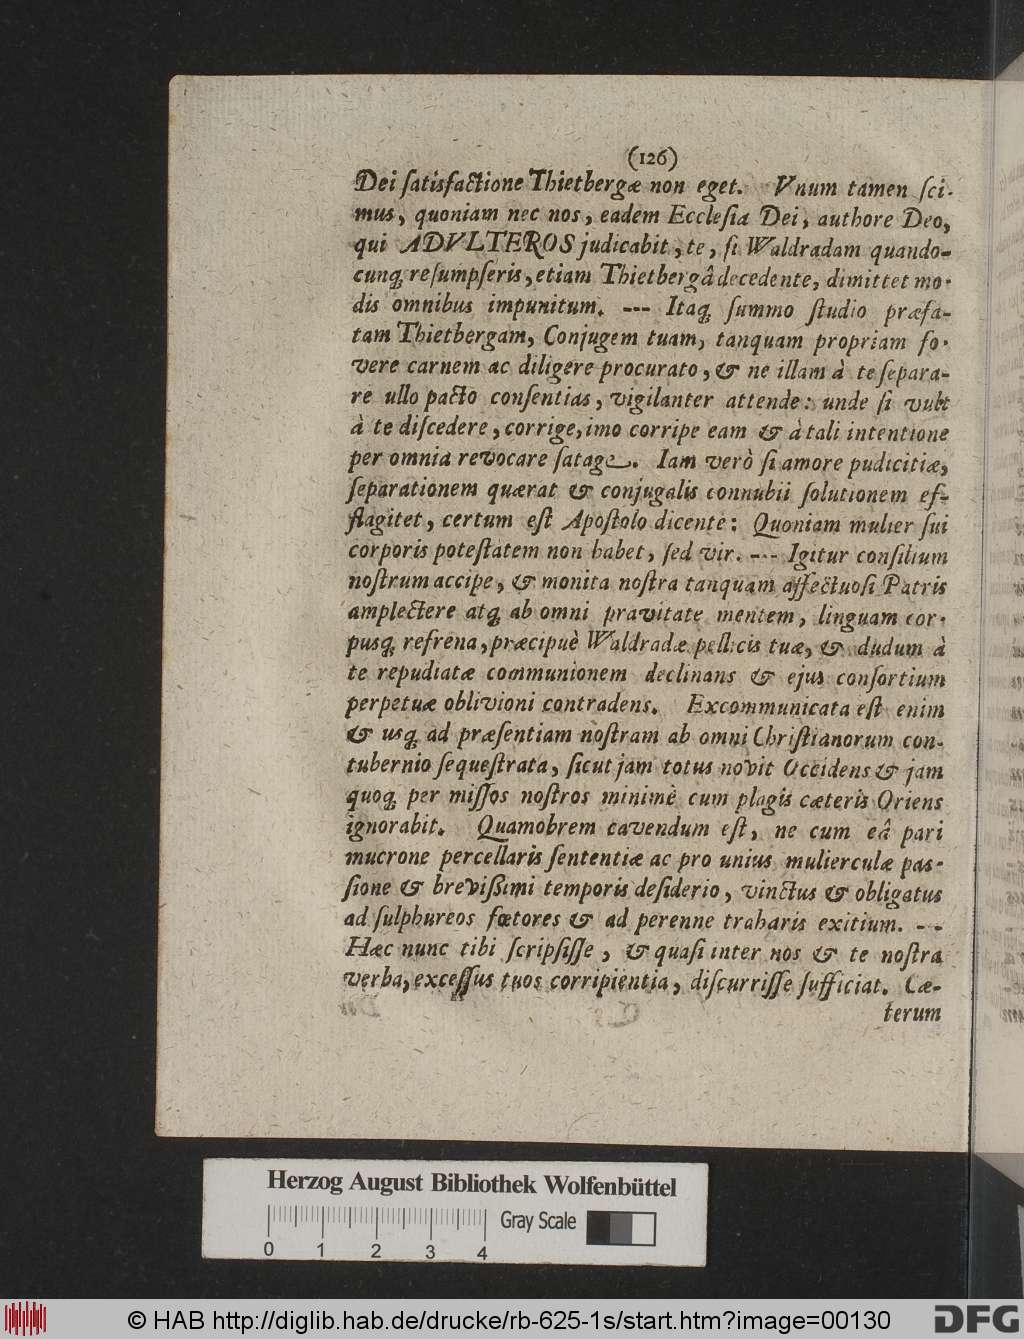 (126)
Dei ſatisfactione Thietbergæ non eget. Vnum tamen ſci-
mus, quoniam nec nos, eadem Eccleſia Dei, authore Deo,
qui ADVLTEROS judicabit, te, ſi Waldradam quando-
cunq; reſumpſeris, etiam Thietbergâ decedente, dimittet mo-
dis omnibus impunitum. --- Itaq; ſummo ſtudio præfa-
tam Thietbergam, Conjugem tuam, tanquam propriam fo-
vere carnem ac diligere procurato, & ne illam à te ſepara-
re ullo pacto conſentias, vigilanter attende: unde ſi vult
à te diſcedere, corrige, imo corripe eam & à tali intentione
per omnia revocare ſatage. Iam verò ſi amore pudicitiæ,
ſeparationem quærat & conjugalis connubii ſolutionem ef-
flagitet, certum eſt Apoſtolo dicente: Quoniam mulier ſui
corporis poteſtatem non habet, ſed vir. --- Igitur conſilium
noſtrum accipe, & monita noſtra tanquam affectuoſi Patris
amplectere atq; ab omni pravitate mentem, linguam cor-
pusq; refrena, præcipuè Waldradæ pellicis tuæ, & dudum à
te repudiatæ communionem declinans & ejus conſortium
perpetuæ oblivioni contradens. Excommunicata eſt enim
& usq; ad præſentiam noſtram ab omni Chriſtianorum con-
tubernio ſequeſtrata, ſicut jam totus novit Occidens & jam
quoq; per miſſos noſtros minimè cum plagis cæteris Oriens
ignorabit. Quamobrem cavendum eſt, ne cum eâ pari
mucrone percellaris ſententiæ ac pro unius mulierculæ pas-
ſione & breviſſimi temporis deſiderio, vinctus & obligatus
ad ſulphureos fœtores & ad perenne traharis exitium. --
Hæc nunc tibi ſcripſiſſe, & quaſi inter nos & te noſtra
verba, exceſſus tuos corripientia, diſcurriſſe ſufficiat. Cæ-
terum
Herzog August Bibliothek Wolfenbüttel
Gray Scale
0 1 2 3 4
© HAB http://diglib.hab.de/drucke/rb-625-1s/start.htm?image=00130
DFG